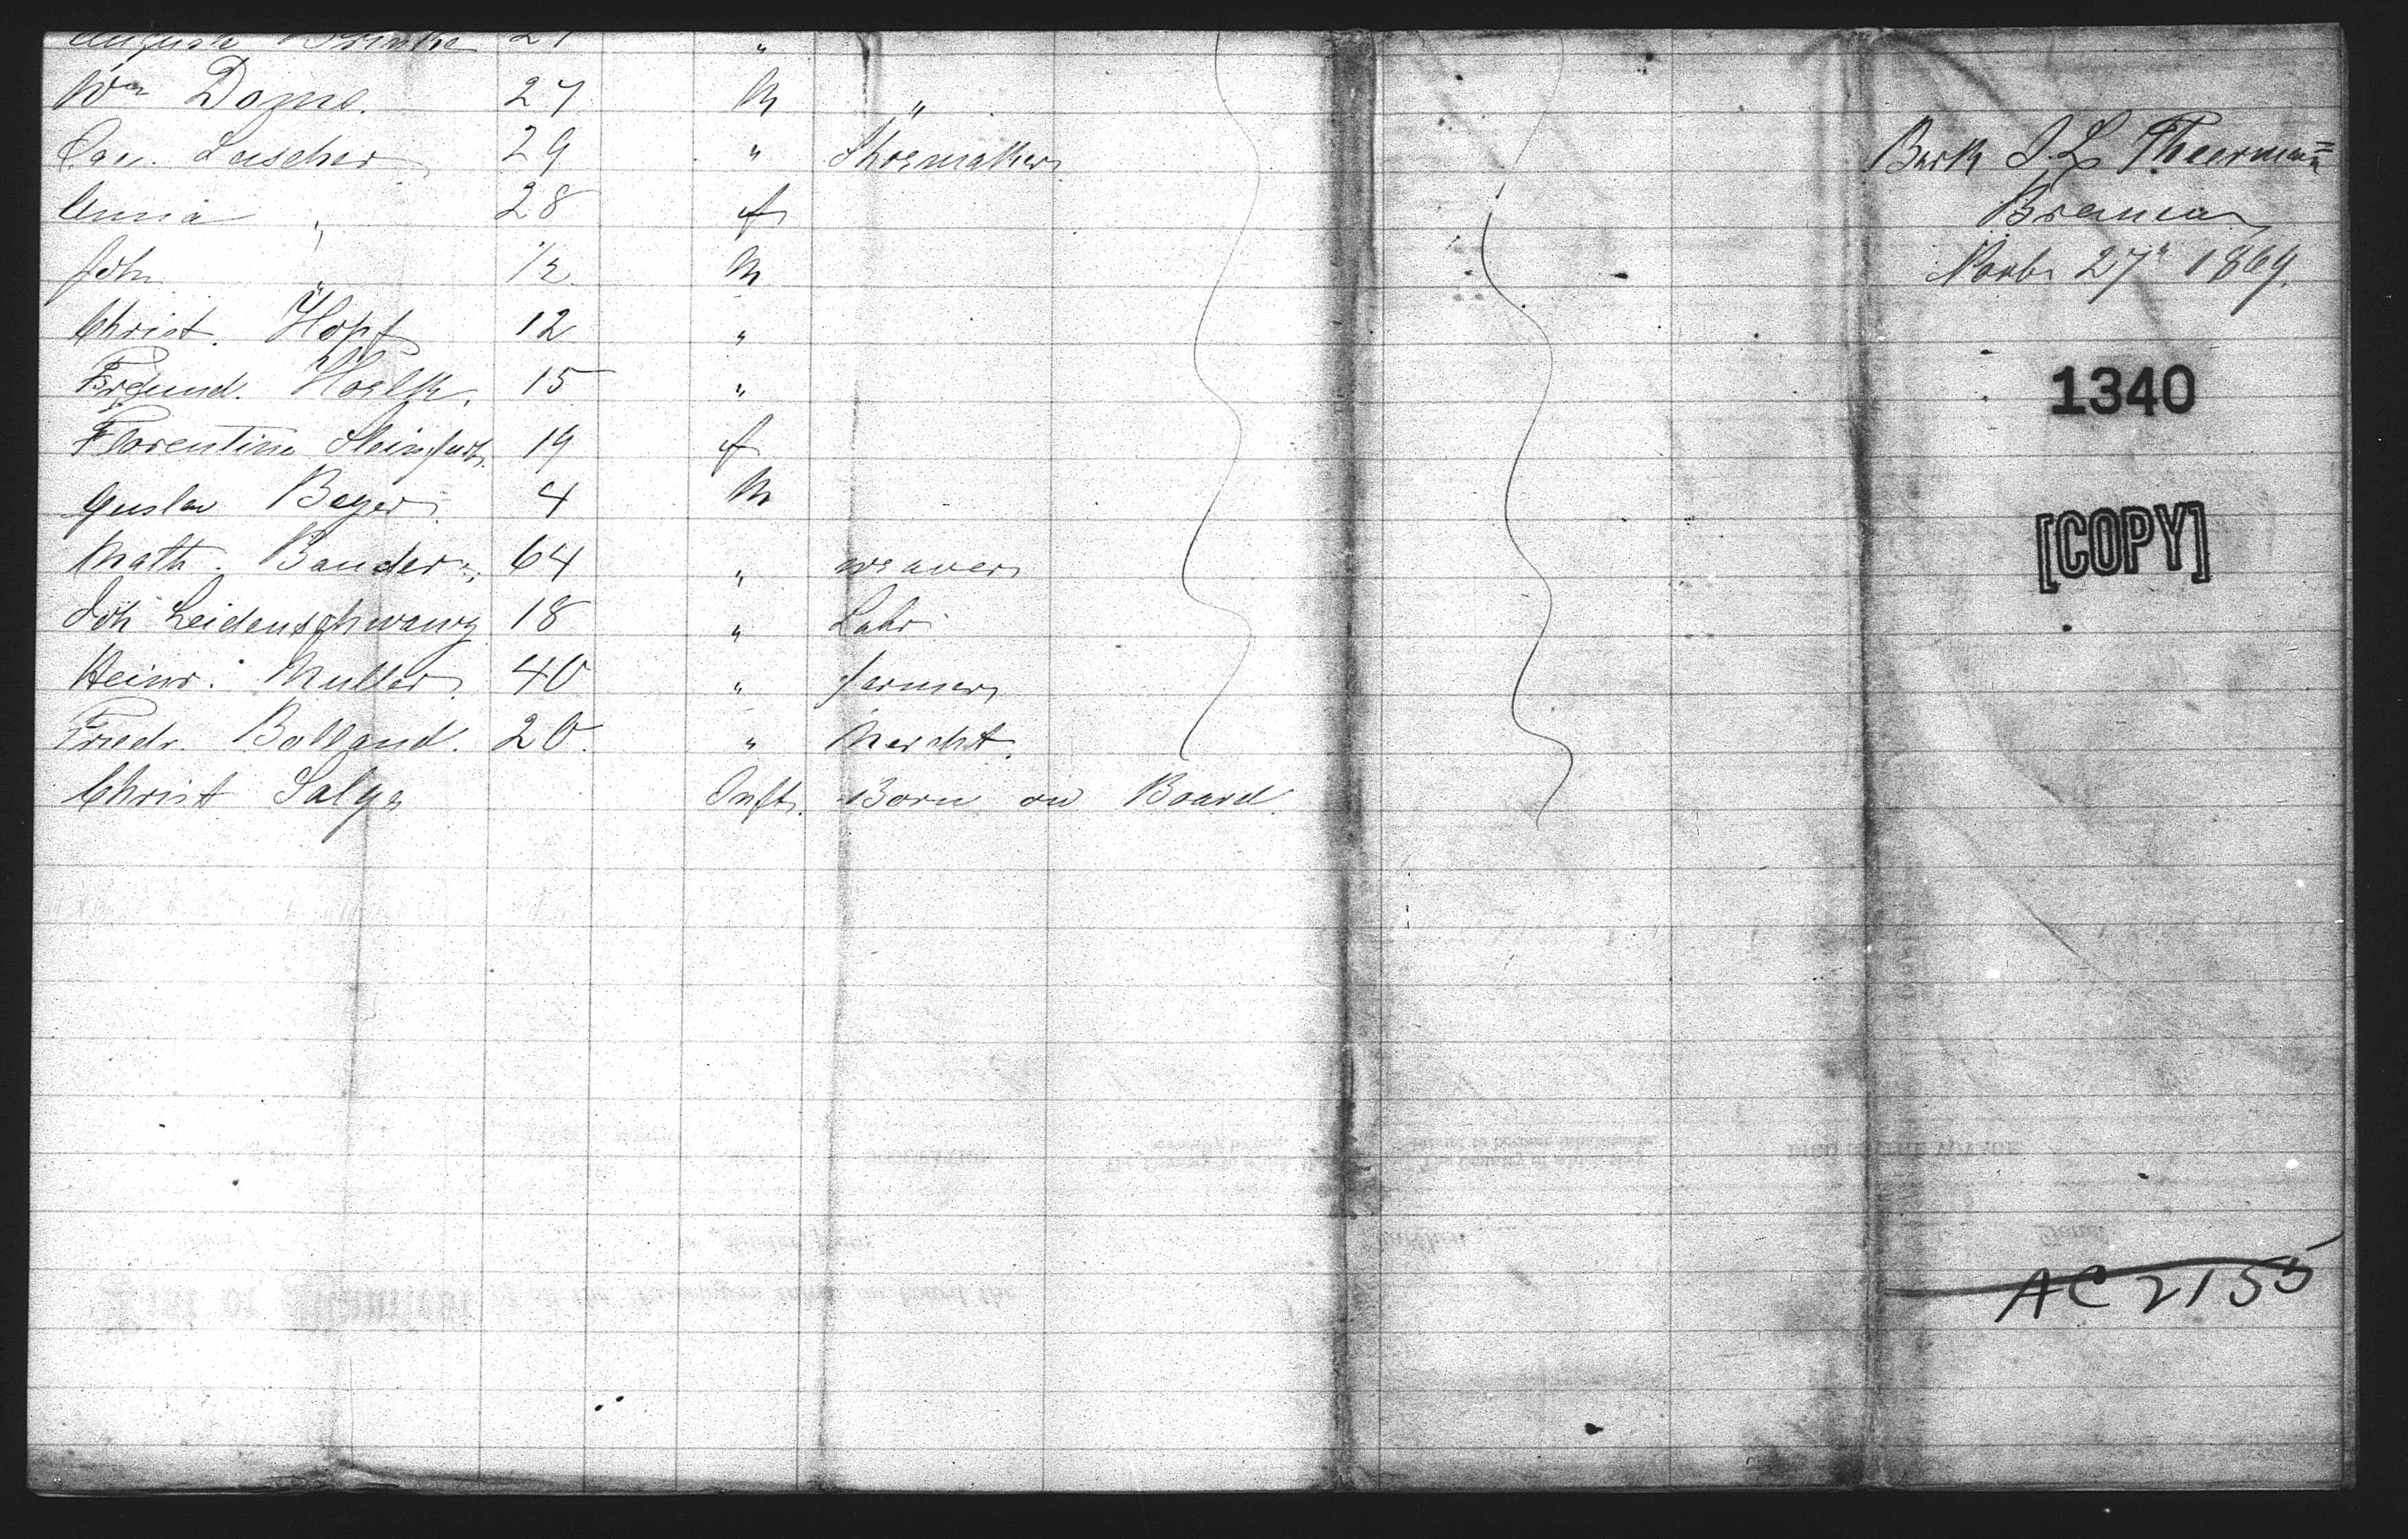 Wm Dogne. 27 M "
Lascher 29 " Shoemaker
Anna " 28 f
Joh. " 1/2 M
Christ. Hopf 12 "
Hoelk. 15 "
Florentine Steinfurth. 19 f
Gustav Beyer 4 M
Math. Bander 64 " weaver
Joh Leidenschwanz 18 " Labr
Heinr. Muller 40 " farmer
Friedr. Bolland. 20. " Mercht.
Christ Salge Inft. Born on Board
Bark J. L. Theermann
Bremen
Novbr 27" 1869.
1340
[COPY]
AC 2155